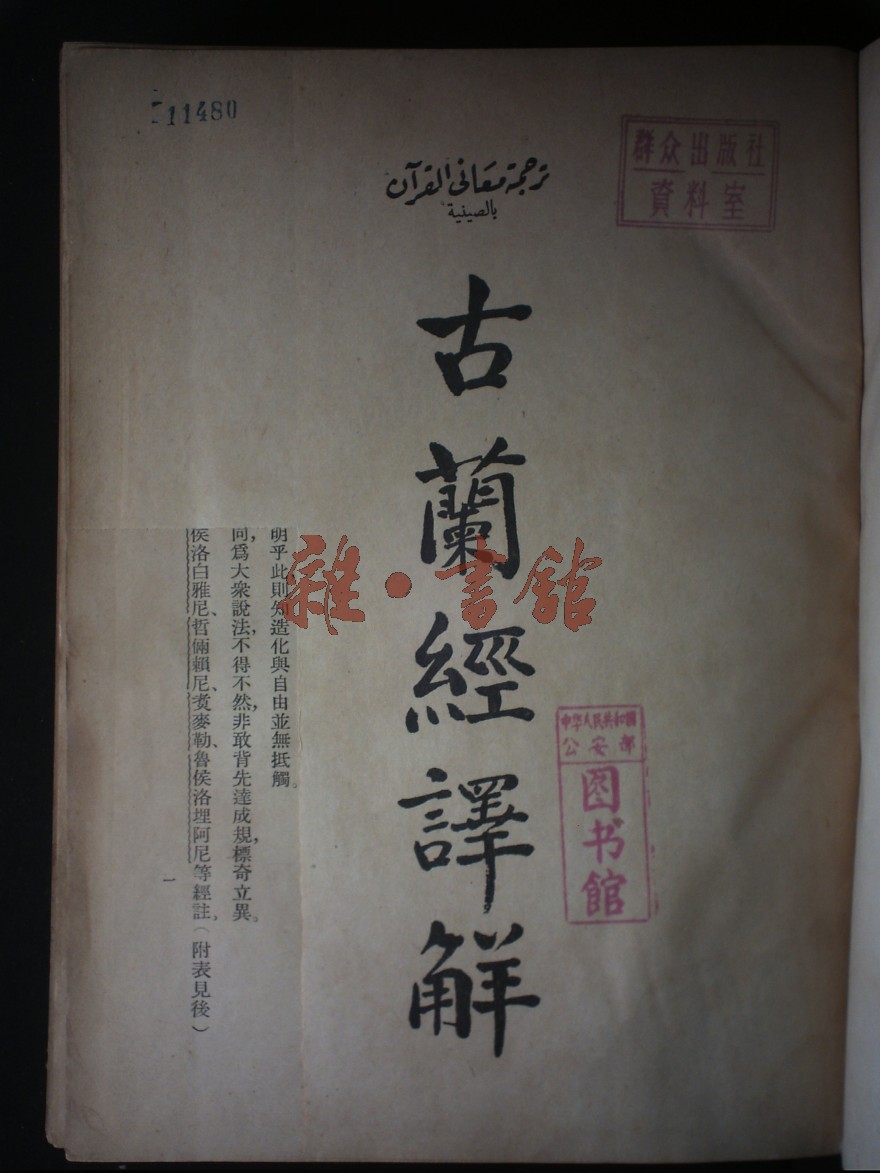 11480
群众出版社
資料室
ترجمة معانى القرآن
بالصينية
古蘭經譯解
中华人民共和國
公安部
图书馆
雜·書館
明乎此則知造化與自由並無抵觸。
同，爲大衆說法，不得不然，非敢背先達成規，標奇立異。
侯洛白雅尼、哲倆賴尼、賁麥勒、魯侯洛埋阿尼等經註，（附表見後）
一